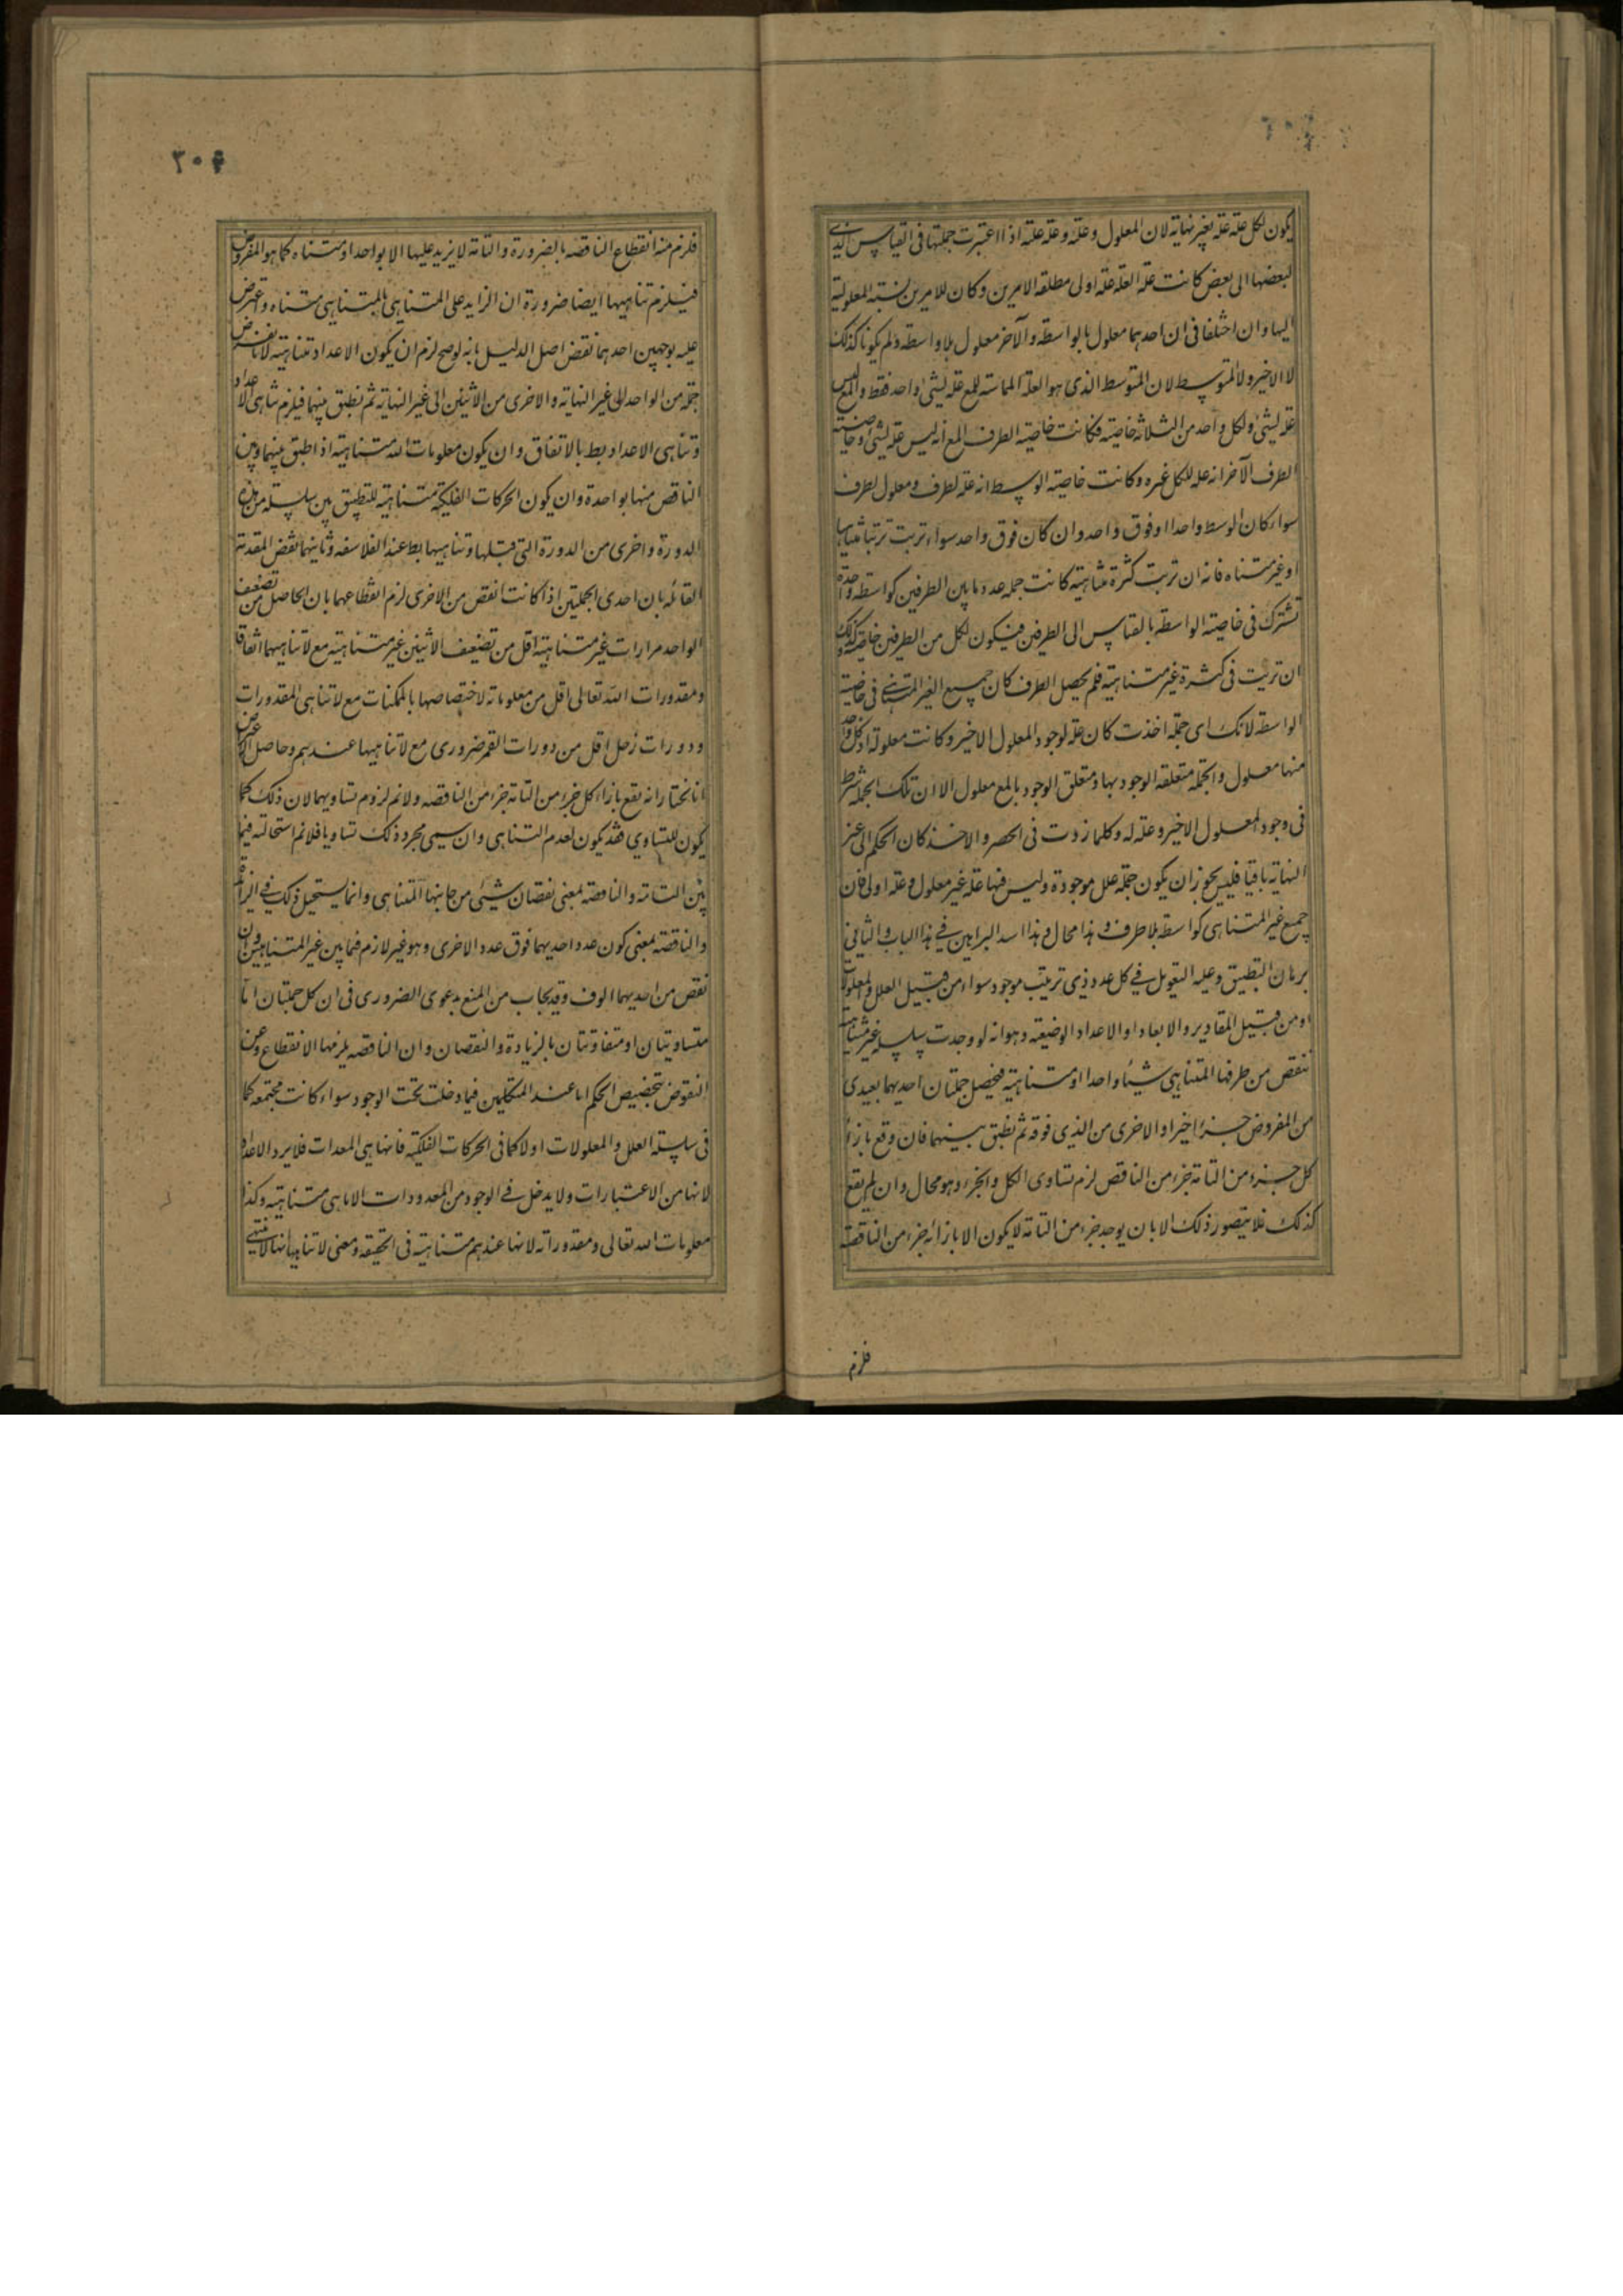 يكون لكل علة علة بغير نهاية لان المعلول وعلة وعلة علته اذا اعتبرت جملتها في القياس الذي
لبعضها الى بعض كانت علة العلة علة اولى مطلقة الامرين وكان للامرين نسبة المعلولية
اليها وان اختلفا في ان احدهما معلول بالواسطة والآخر معلول بلا واسطة ولم يكونا كذلك
لا الاخير ولا المتوسط لان المتوسط الذي هو العلة المماسة للمع علة لشئ واحد فقط والمع ليس
علة لشئ ولكل واحد من الثلاثة خاصية فكانت خاصية الطرف المع انه ليس علة لشئ وخاصية
الطرف الآخر انه علة للكل غيره وكانت خاصية الوسط انه علة لطرف ومعلول لطرف
سواء كان الوسط واحدا او فوق واحد وان كان فوق واحد سواء ترتب ترتبا متناهيا
او غير متناه فانه ان ترتب كثرة متناهية كانت جملة عدد ما بين الطرفين كواسطة واحدة
تشترك في خاصية الواسطة بالقياس الى الطرفين فيكون لكل من الطرفين خاصية وكذلك
ان ترتبت في كثرة غير متناهية فلم يحصل الطرف كان جميع الغير المتناهي في خاصية
الواسطة لانك اى جملة اخذت كان علة لوجود المعلول الاخير وكانت معلولة اذ كل واحد
منها معلول والجملة متعلقة الوجود بها ومتعلق الوجود بالمع معلول الا ان تلك الجملة شرط
في وجود المعلول الاخير وعلة له وكلما زدت في الحصر والاخذ كان الحكم الى غير
النهاية باقيا فليس يجوز ان يكون جملة علل موجودة وليس فيها علة غير معلول وعلة اولى فان
جميع غير المتناهي كواسطة بلا طرف وهذا محال وهذا اسد البراهين في هذا الباب والثاني
برهان التطبيق وعليه التعويل في كل عدد ذي ترتيب موجود سواء من قبيل العلل والمعلولات
او من قبيل المقادير والابعاد او الاعداد الوضعية وهو انه لو وجدت سلسلة غير متناهية
ننقص من طرفها المتناهي شيئا واحدا او متناهية فيحصل جملتان احديهما يبتدى
من المفروض جزءا اخيرا والاخرى من الذي فوقه ثم نطبق بينهما فان وقع بازاء
كل جزء من التامة جزء من الناقص لزم تساوى الكل والجزء وهو محال وان لم يقع
كذلك فلا يتصور ذلك الا بان يوجد جزء من التامة لا يكون الا بازائه جزء من الناقصة
فلزم
٣٠٤
فلزم منه انقطاع الناقصة بالضرورة والتامة لا يزيد عليها الا بواحد او متناه كما هو المفروض
فيلزم تناهيها ايضا ضرورة ان الزايد على المتناهي بالمتناهي متناه واعترض
عليه بوجهين احدهما نقض اصل الدليل بانه لو صح لزم ان يكون الاعداد متناهية لانا نفرض
جملة من الواحد الى غير النهاية والاخرى من الاثنين الى غير النهاية ثم نطبق بينهما فيلزم تناهى الاعداد
وتناهى الاعداد بط بالاتفاق وان يكون معلومات الله متناهية اذا طبق بينها وبين
الناقص منها بواحدة وان يكون الحركات الفلكية متناهية للتطبيق بين سلسلة من هذه
الدورة واخرى من الدورة التي قبلها وتناهيها بط عند الفلاسفة وثانيهما نقض المقدمة
القائلة بان احدى الجملتين اذا كانت انقص من الاخرى لزم انقطاعهما بان الحاصل من تضعيف
الواحد مرارات غير متناهية اقل من تضعيف الاثنين غير متناهية مع لا تناهيهما اتفاقا
ومقدورات الله تعالى اقل من معلوماته لاختصاصها بالممكنات مع لا تناهى المقدورات
ودورات زحل اقل من دورات القمر ضرورى مع لا تناهيها عندهم وحاصل الاعتراض
انا نختار انه يقع بازاء كل جزء من التامة جزء من الناقصة ولا نم لزوم تساويهما لان ذلك كما
يكون للتساوي فقد يكون لعدم التناهى وان سمى مجرد ذلك تساويا فلا نم استحالته فيما
بين التامة والناقصة بمعنى نقصان شئ من جانبها المتناهي وانما يستحيل ذلك في الزائدة
والناقصة بمعنى كون عدد احديهما فوق عدد الاخرى وهو غير لازم فيما بين غير المتناهيين وان
نقص من احديهما الوف وقد يجاب من المنع بدعوى الضرورى في ان كل جملتان اما
متساويتان او متفاوتتان بالزيادة والنقصان وان الناقصة يلزمها الانقطاع وعن
النقوض بتخصيص الحكم اما عند المتكلمين فيما دخلت تحت الوجود سواء كانت مجتمعة كما
في سلسلة العلل والمعلولات او لا كما في الحركات الفلكية فانها هي المعدات فلا يرد الاعداد
لانها من الاعتبارات ولا يدخل في الوجود من المعدودات الا ما هي متناهية وكذا
معلومات الله تعالى ومقدوراته لانها عندهم متناهية في الحقيقة ومعنى لا تناهيها انها لا ينتهي